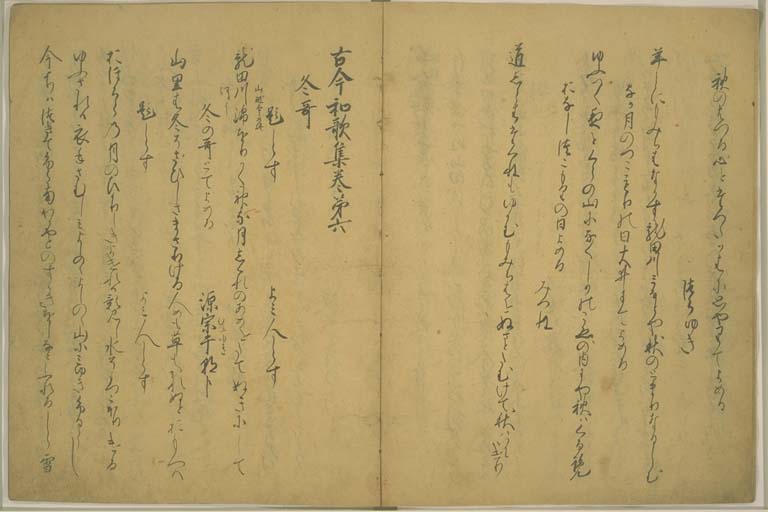 秋のはつる心をたつた川に思やりてよめる
つらゆき
年ことにもみちはなかす龍田川みなとや秋のとまりなるらむ
なか月のつこもりの日大井にてよめる
ゆふつく夜をくらの山になくしかのこゑの内にや秋はくる覧
おなしつこもりの日よめる
みつね
道しらはたつねもゆかむもみちはをぬさとたむけて秋はいにけり
古今和歌集巻第六
冬哥
題しらす　よみ人しらす
龍田川錦をりかく神な月しくれのあめをたてぬきにして
冬の哥とてよめる　源宗于朝臣
山里は冬そさひしさまさりける人めも草もかれぬとおもへは
題しらす　よみ人しらす
おほそらの月のひかりしきよけれは影見し水そまつこほりける
ゆふされは衣手さむしみよしのゝよしのゝ山にみゆきふるらし
今よりはつきてふら南わかやとのすゝきおしなみふれるしら雪